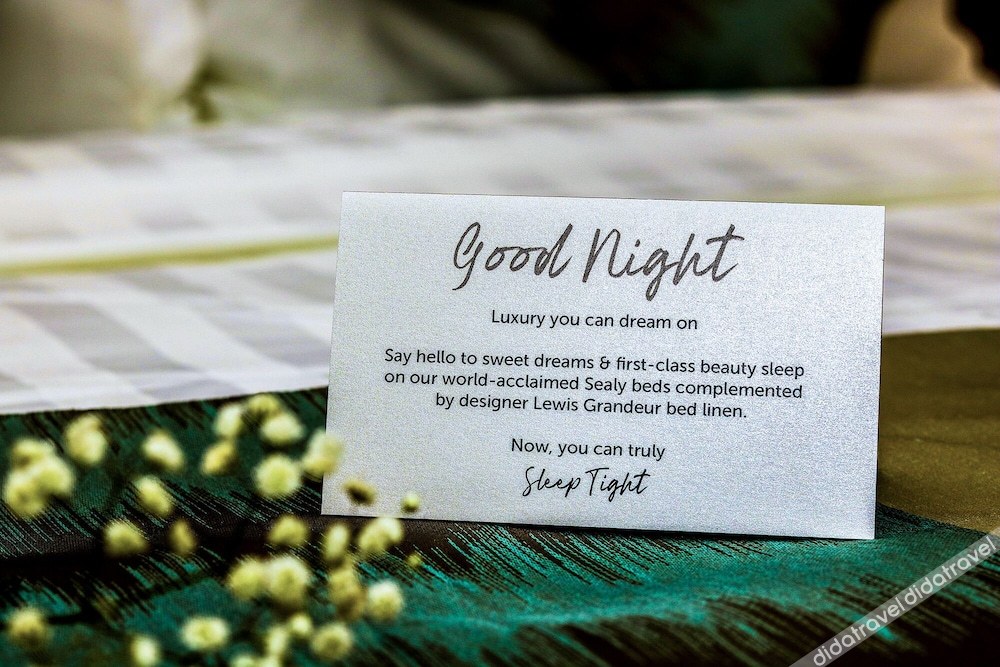 Good Night
Luxury you can dream on
Say hello to sweet dreams & first-class beauty sleep
on our world-acclaimed Sealy beds complemented
by designer Lewis Grandeur bed linen.
Now, you can truly
Sleep Tight
didatravel didatravel